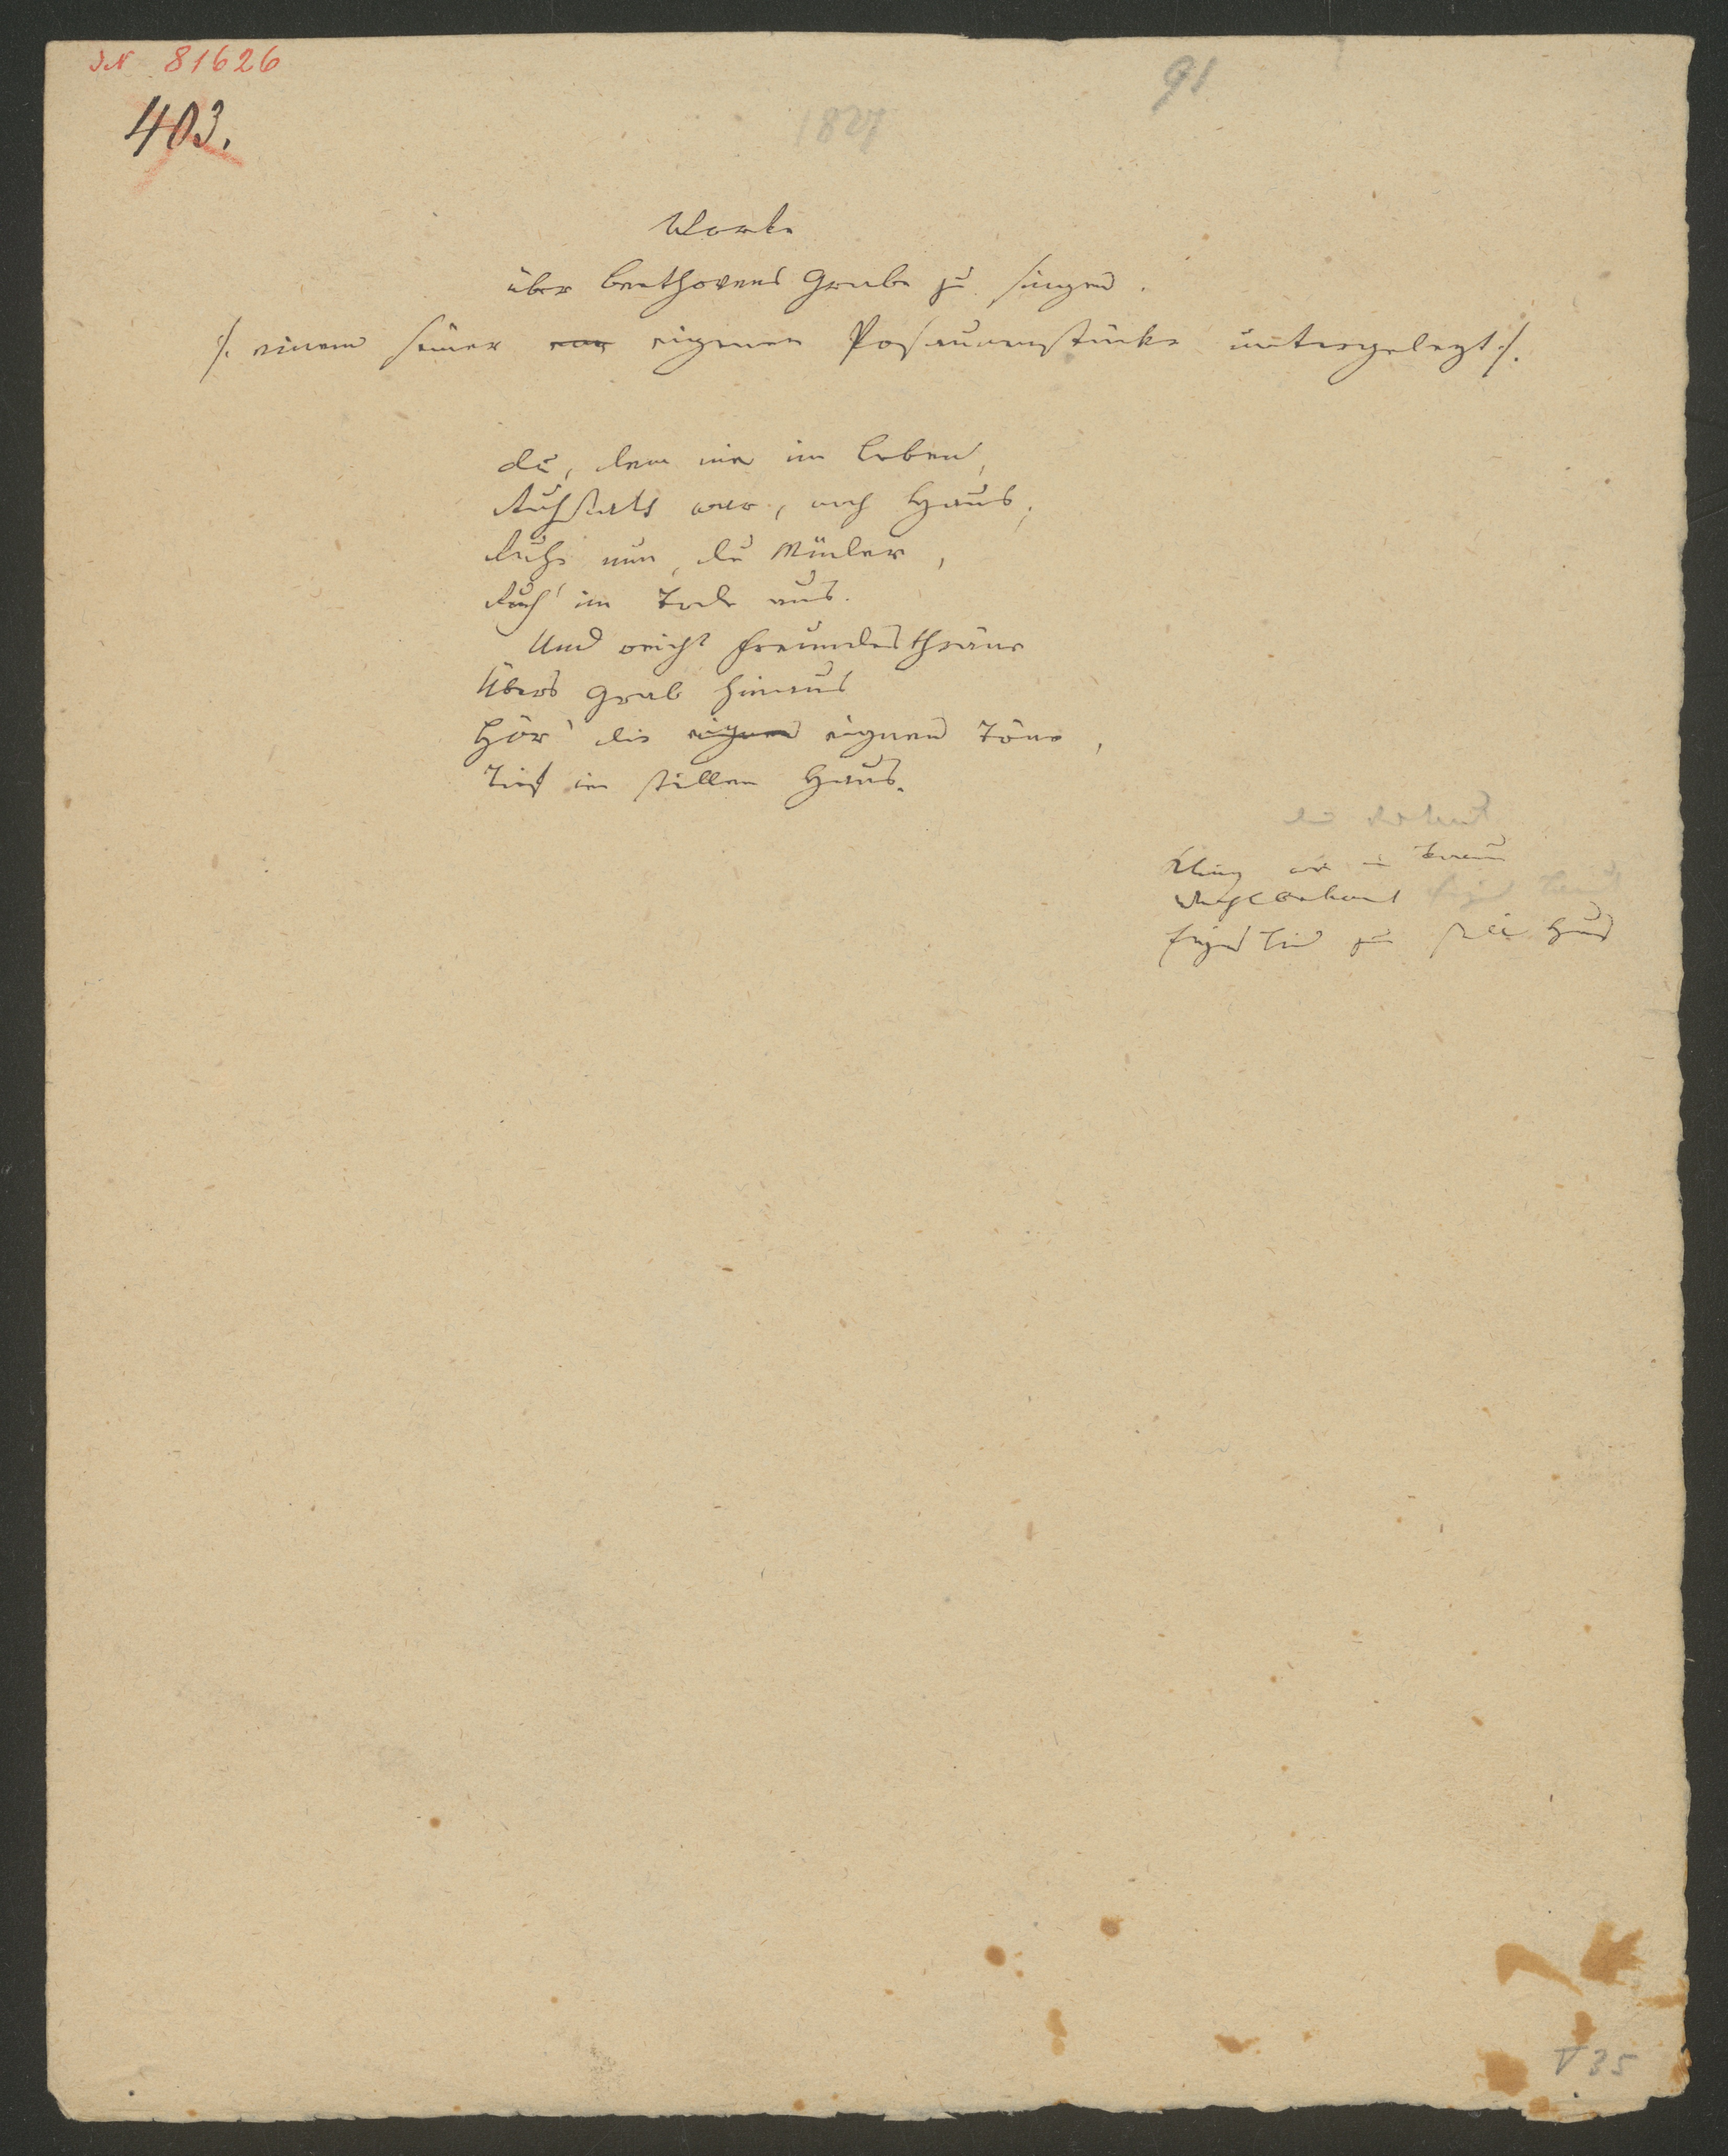 JN 81626
91
403.
1827
Worte
über Beethovens Grabe zu singen.
/. einem seiner eigenen Posaunenstücke untergelegt ./.
Du, dem nie im Leben,
Ruhstatt war, noch Haus,
Ruhe nun, du Müder,
Ruh' im Tode aus.
Und reicht Freundesthräne
Übers Grab hinaus
Hör' die eignen eignen Töne,
Tief im stillen Haus.
V 35